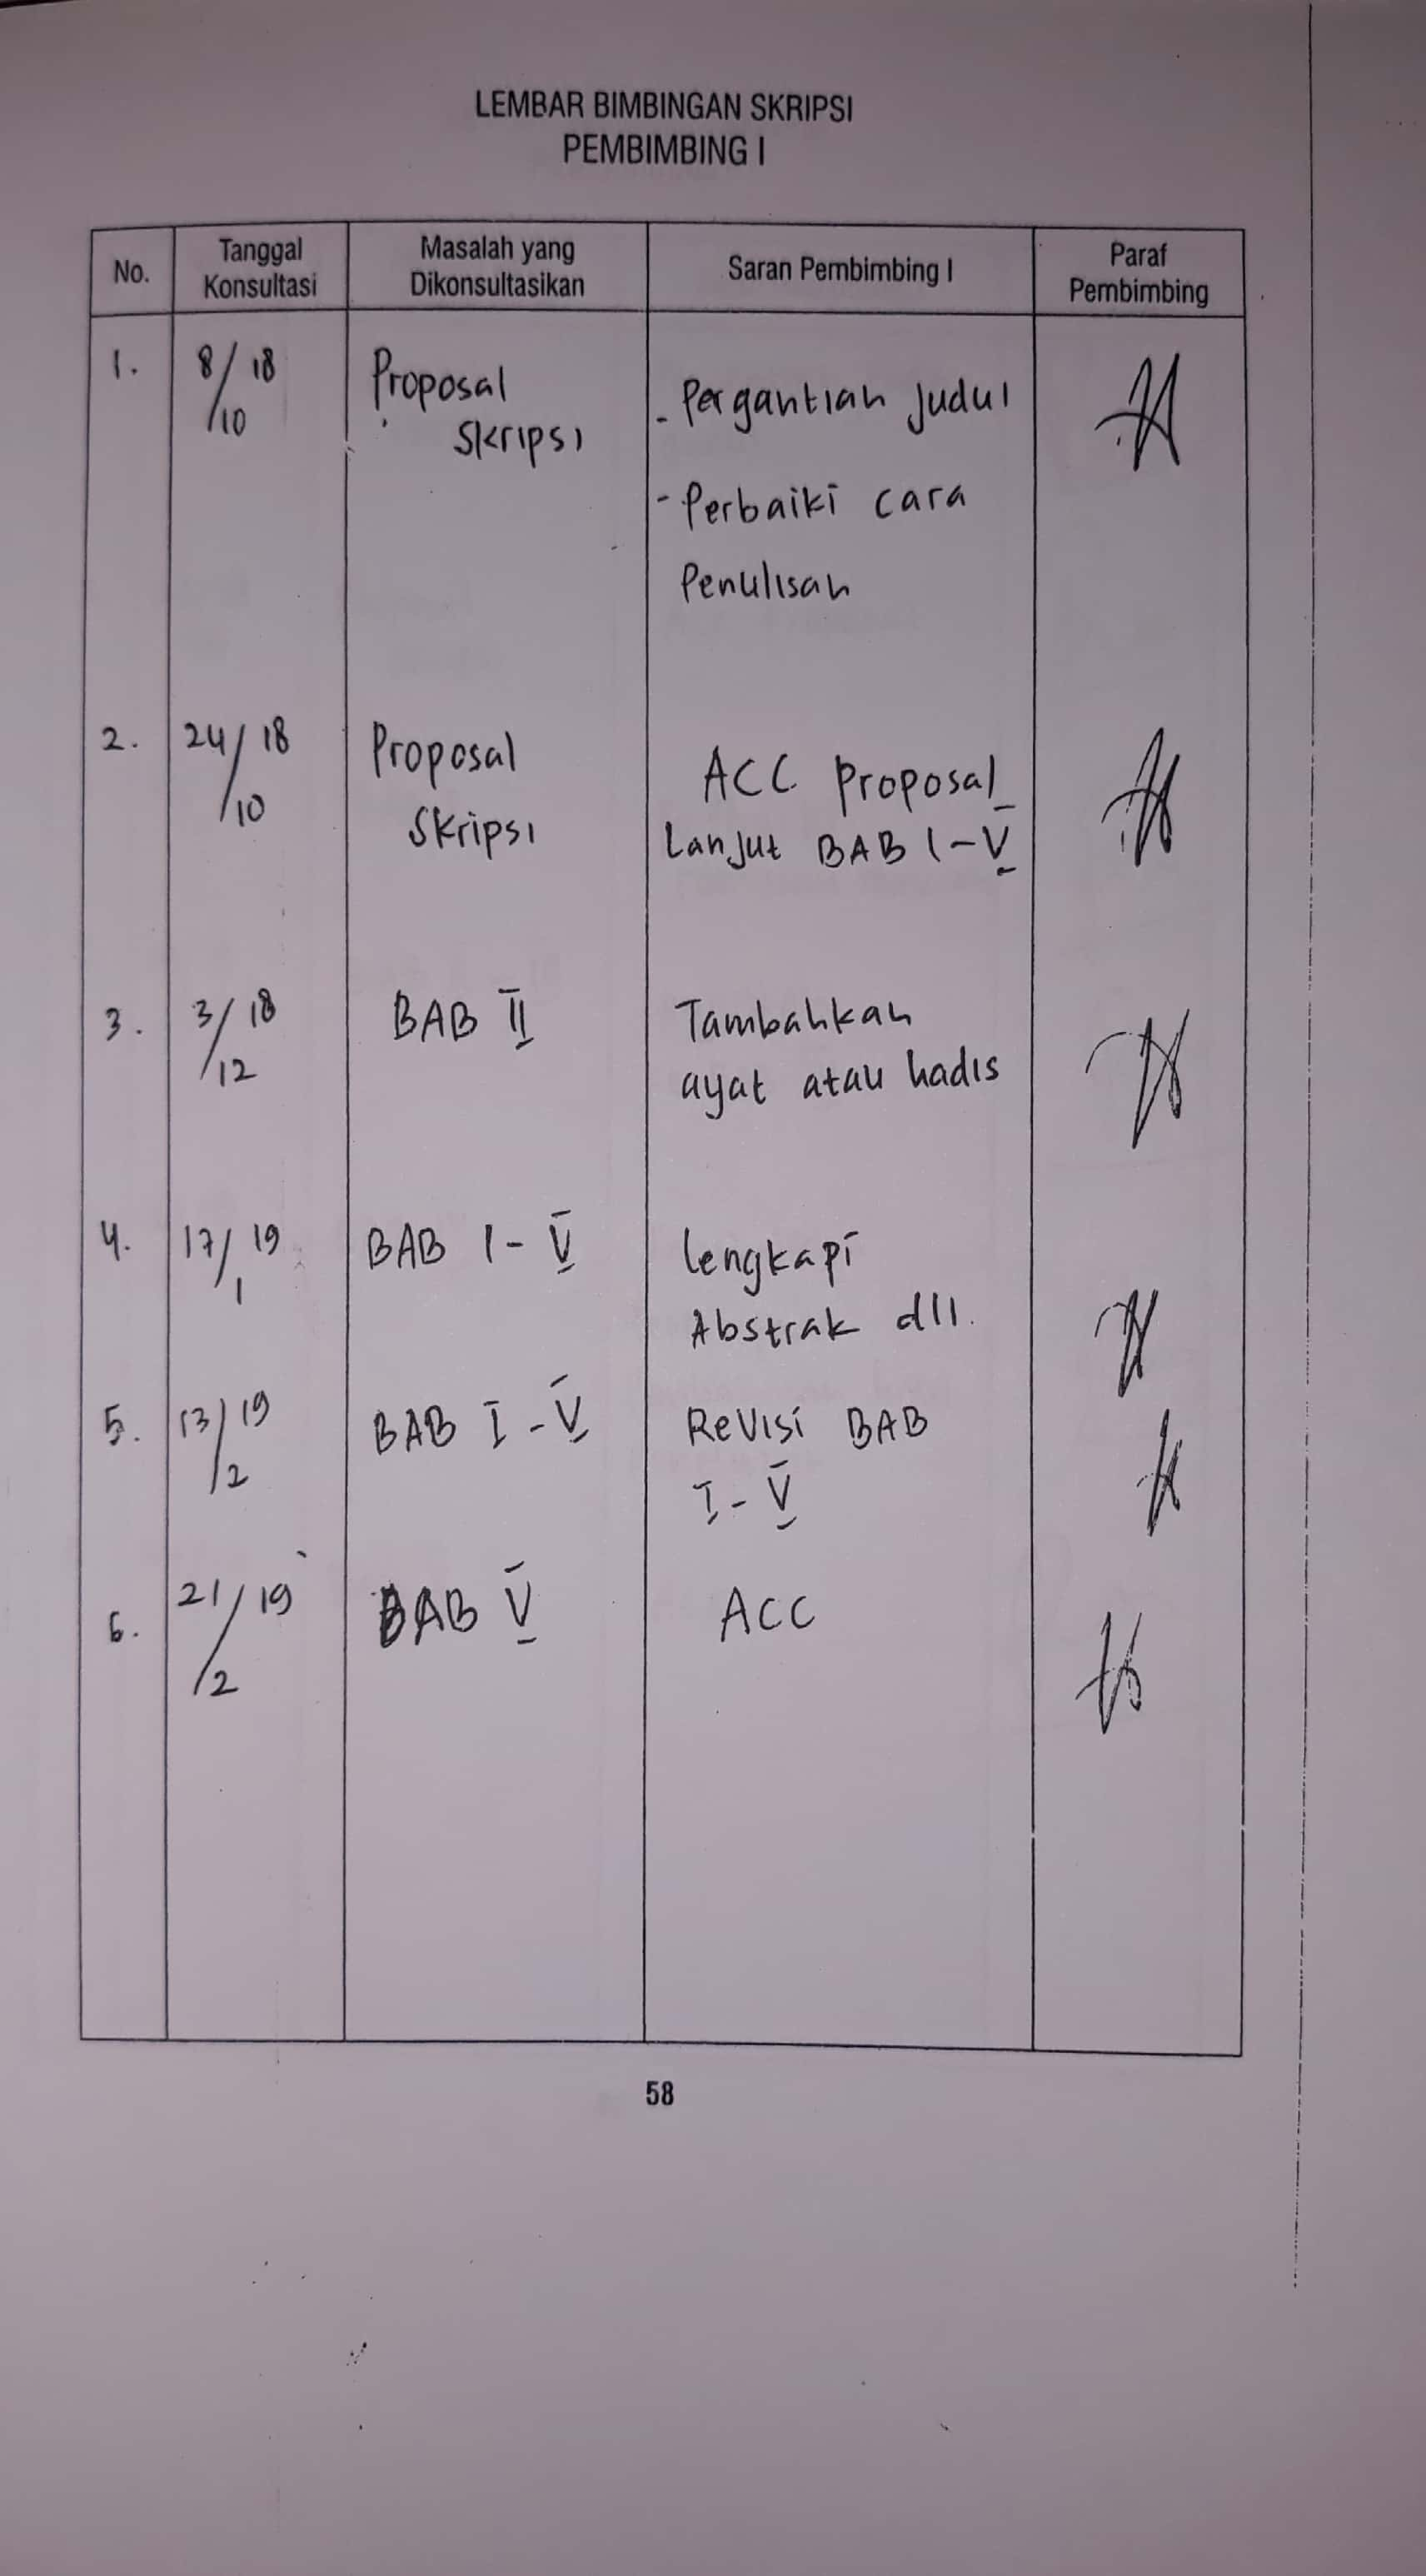 LEMBAR BIMBINGAN SKRIPSI
PEMBIMBING I
No.
Tanggal
Konsultasi
Masalah yang
Dikonsultasikan
Saran Pembimbing I
Paraf
Pembimbing
1.
8/10 18
Proposal
Skripsi
- Pergantian judul
- Perbaiki cara
Penulisan
2.
24/10 18
Proposal
Skripsi
ACC Proposal
Lanjut BAB I-V
3.
3/12 18
BAB II
Tambahkan
ayat atau hadis
4.
17/1 19
BAB I-V
lengkapi
Abstrak dll.
5.
13/2 19
BAB I-V
Revisi BAB
I-V
6.
21/2 19
BAB V
ACC
58